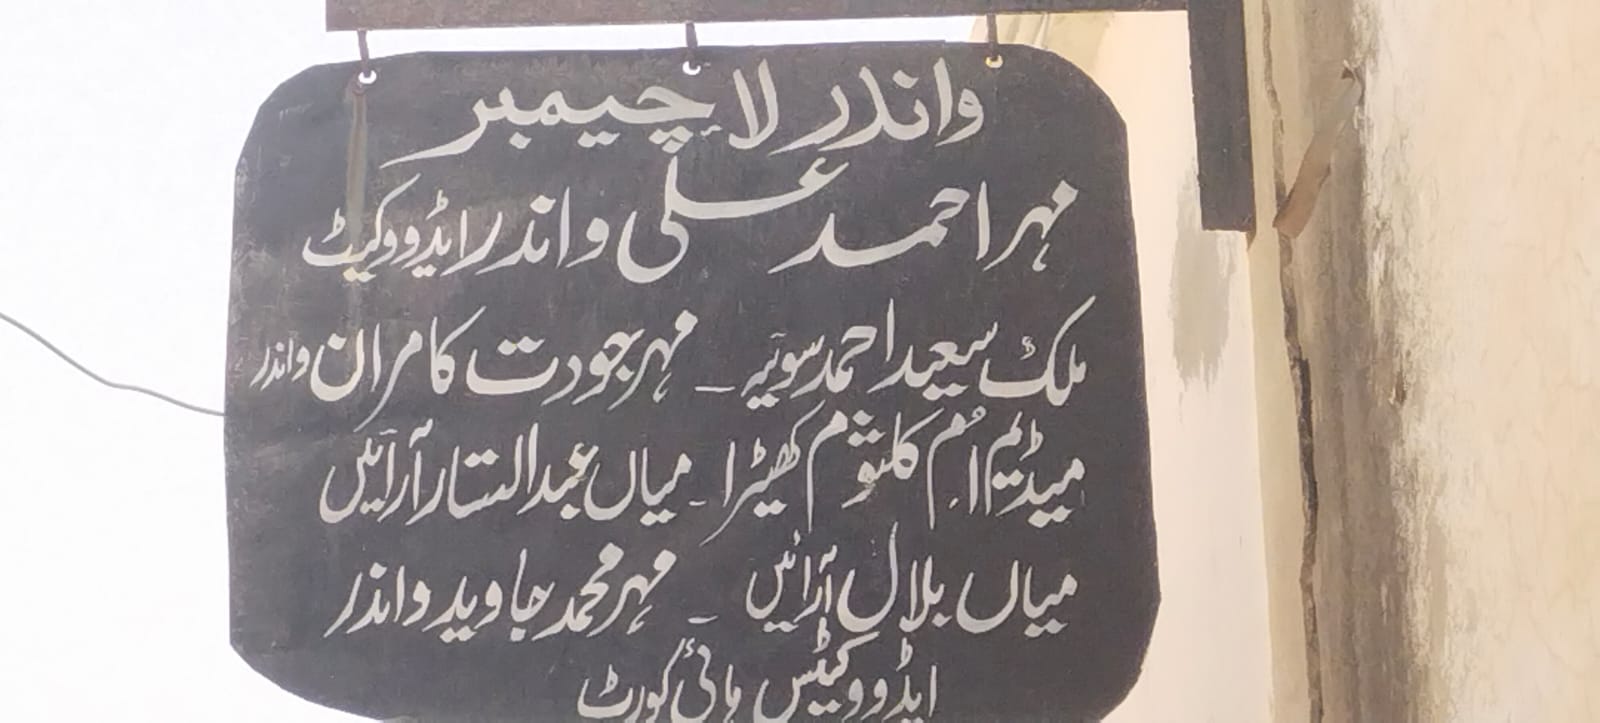 واندر لاء چیمبر
مہر احمد علی واندر ایڈووکیٹ
ملک سعید احمد سوئیہ - مہر جودت کامران واندر
میڈیم اُم کلثوم کھیڑا - میاں عبدالستار آرائیں
میاں بلال آرائیں - مہر محمد جاوید واندر
ایڈووکیٹس ہائی کورٹ